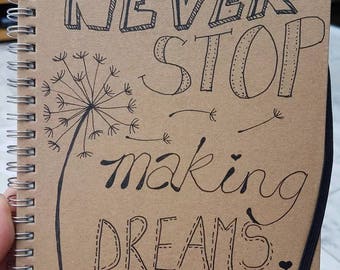 NEVER
STOP
making
DREAMS.